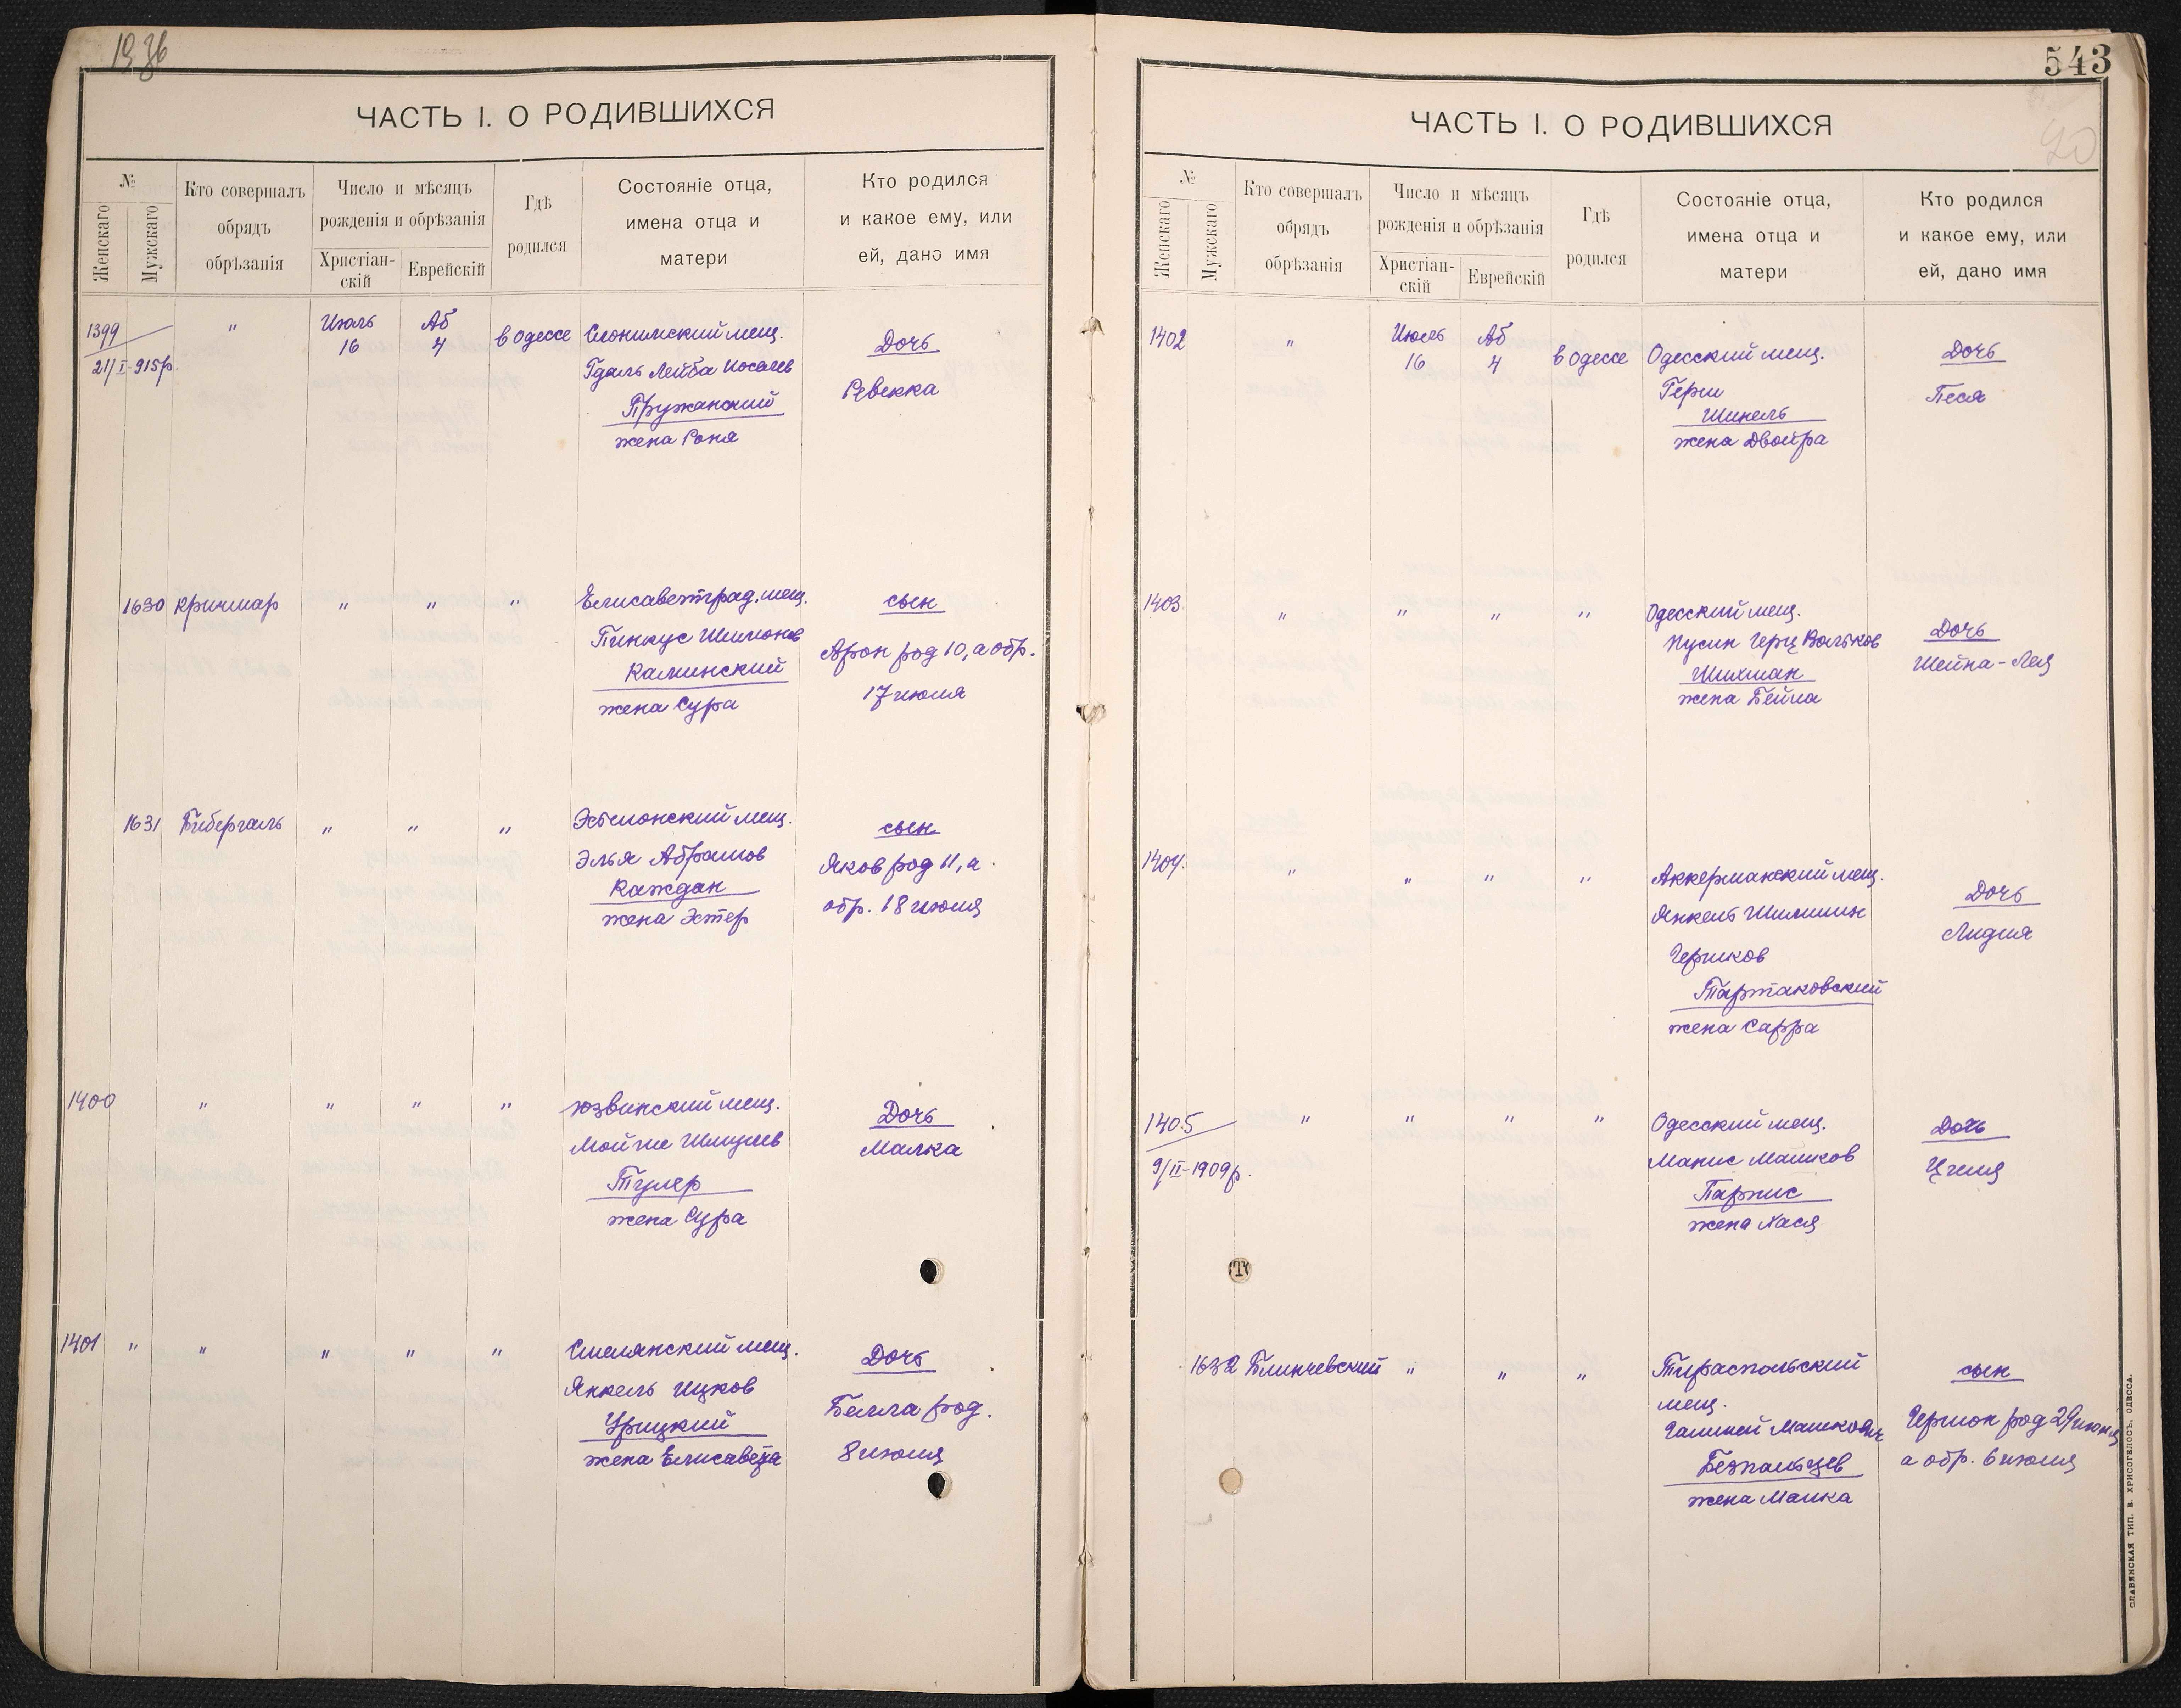 19 36
ЧАСТЬ I. О РОДИВШИХСЯ
№
Женскаго
Мужскаго
Кто совершалъ
обрядъ
обрѣзанія
Число и мѣсяцъ
рожденія и обрѣзанія
Христіан-
скій
Еврейскій
Гдѣ
родился
Состояніе отца,
имена отца и
матери
Кто родился
и какое ему, или
ей, дано имя
1399
21/I-915р.
"
Июль
16
Аб
4
в Одессе
Слонимский мещ.
Гдаль Лейба Иоселев
Пружанский
жена Роня
Дочь
Ревекка
1630
Кричмар
"
"
"
Елисаветград. мещ.
Пинкус Шимонов
Калинский
жена Сура
сын
Арон род 10, а обр.
17 июля
1631
Бибергаль
"
"
"
Эхсионский мещ.
Элья Абрамов
Каждан
жена Эстер
сын
Яков род 11, а
обр. 18 июля
1400
"
"
"
"
Юзвинский мещ.
Мойше Шмулев
Тулер
жена Сура
Дочь
Малка
1401
"
"
"
"
"
Смелянский мещ.
Янкель Ицков
Урицкий
жена Елисавета
Дочь
Бella род.
8 июля
543
40
ЧАСТЬ I. О РОДИВШИХСЯ
№
Женскаго
Мужскаго
Кто совершалъ
обрядъ
обрѣзанія
Число и мѣсяцъ
рожденія и обрѣзанія
Христіан-
скій
Еврейскій
Гдѣ
родился
Состояніе отца,
имена отца и
матери
Кто родился
и какое ему, или
ей, дано имя
1402
"
Июль
16
Аб
4
в Одессе
Одесский мещ.
Герш
Шинель
жена Двойра
Дочь
Песя
1403
"
"
"
"
Одесский мещ.
Нусин Герц Вольков
Шихман
жена Бейла
Дочь
Шейна-Лея
1404.
"
"
"
"
Аккерманский мещ.
Янкель Шимшин
Гершков
Тартаковский
жена Сарра
Дочь
Лидия
1405
9/II-1909р.
"
"
"
"
Одесский мещ.
Манис Машков
Парнис
жена Хася
Дочь
Циля
1632
Блинчевский
"
"
"
Тираспольский
мещ.
Машкович
Безпальцев
жена Малка
сын
Гершон род 29 июня
а обр. 6 июля
СЛАВЯНСКАЯ ТИП. Н. ХРИСОГЕЛОСЪ, ОДЕССА.